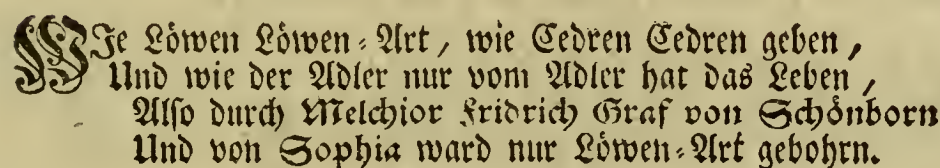 WIe Löwen Löwen-Art, wie Cedren Cedren geben,
Und wie der Adler nur vom Adler hat das Leben,
Also durch Melchior Fridrich Graf von Schönborn
Und von Sophia ward nur Löwen-Art gebohrn.